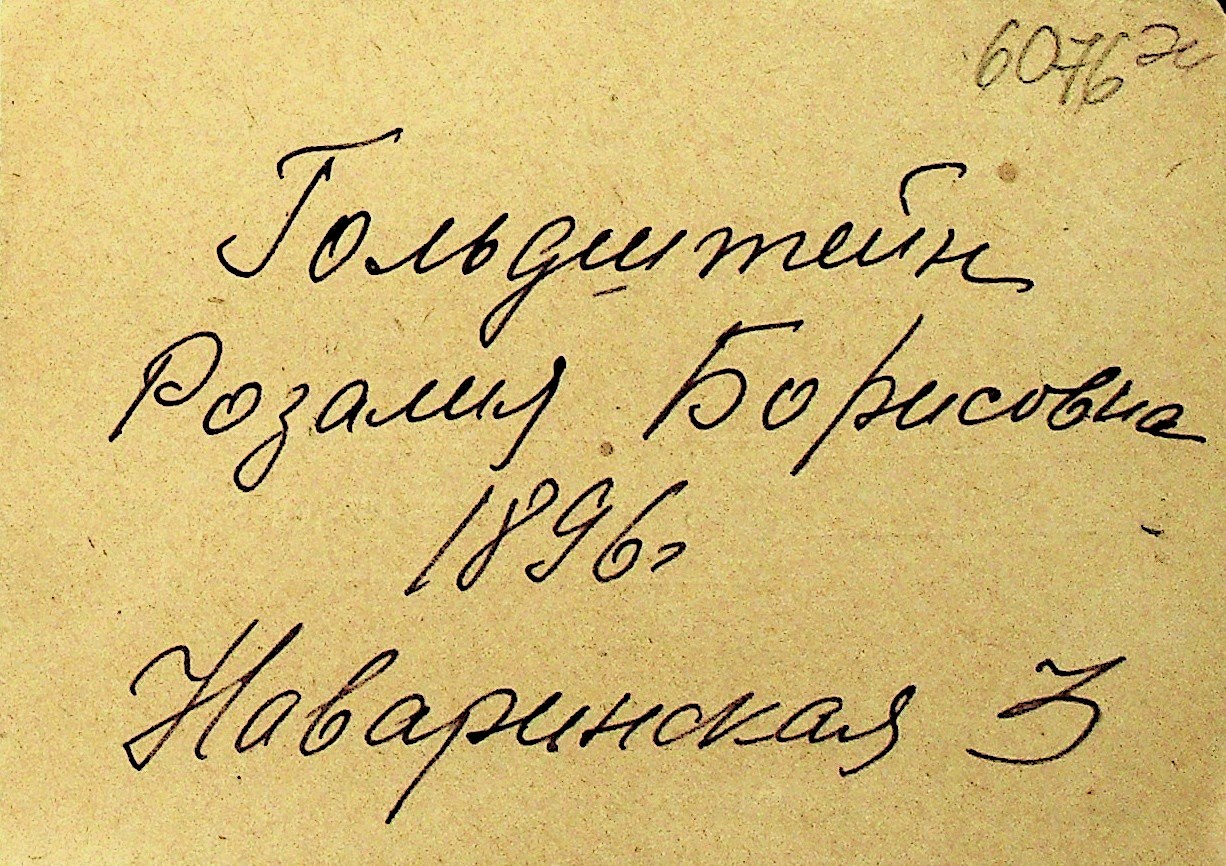 6076
Гольдштейн
Розалия Борисовна
1896г
Наваринская 3